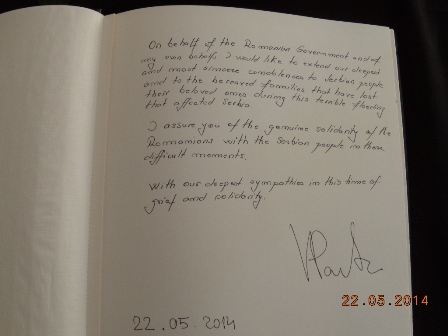 On behalf of the Romanian Government and of
my own behalf, I would like to extend our deepest
and most sincere condolences to Serbian people
and to the bereaved families that have lost
their beloved ones during this terrible flooding
that affected Serbia.
I assure you of the genuine solidarity of the
Romanians with the Serbian people in these
difficult moments.
With our deepest sympathies in this time of
grief and solidarity.
22.05.2014
22.05.2014